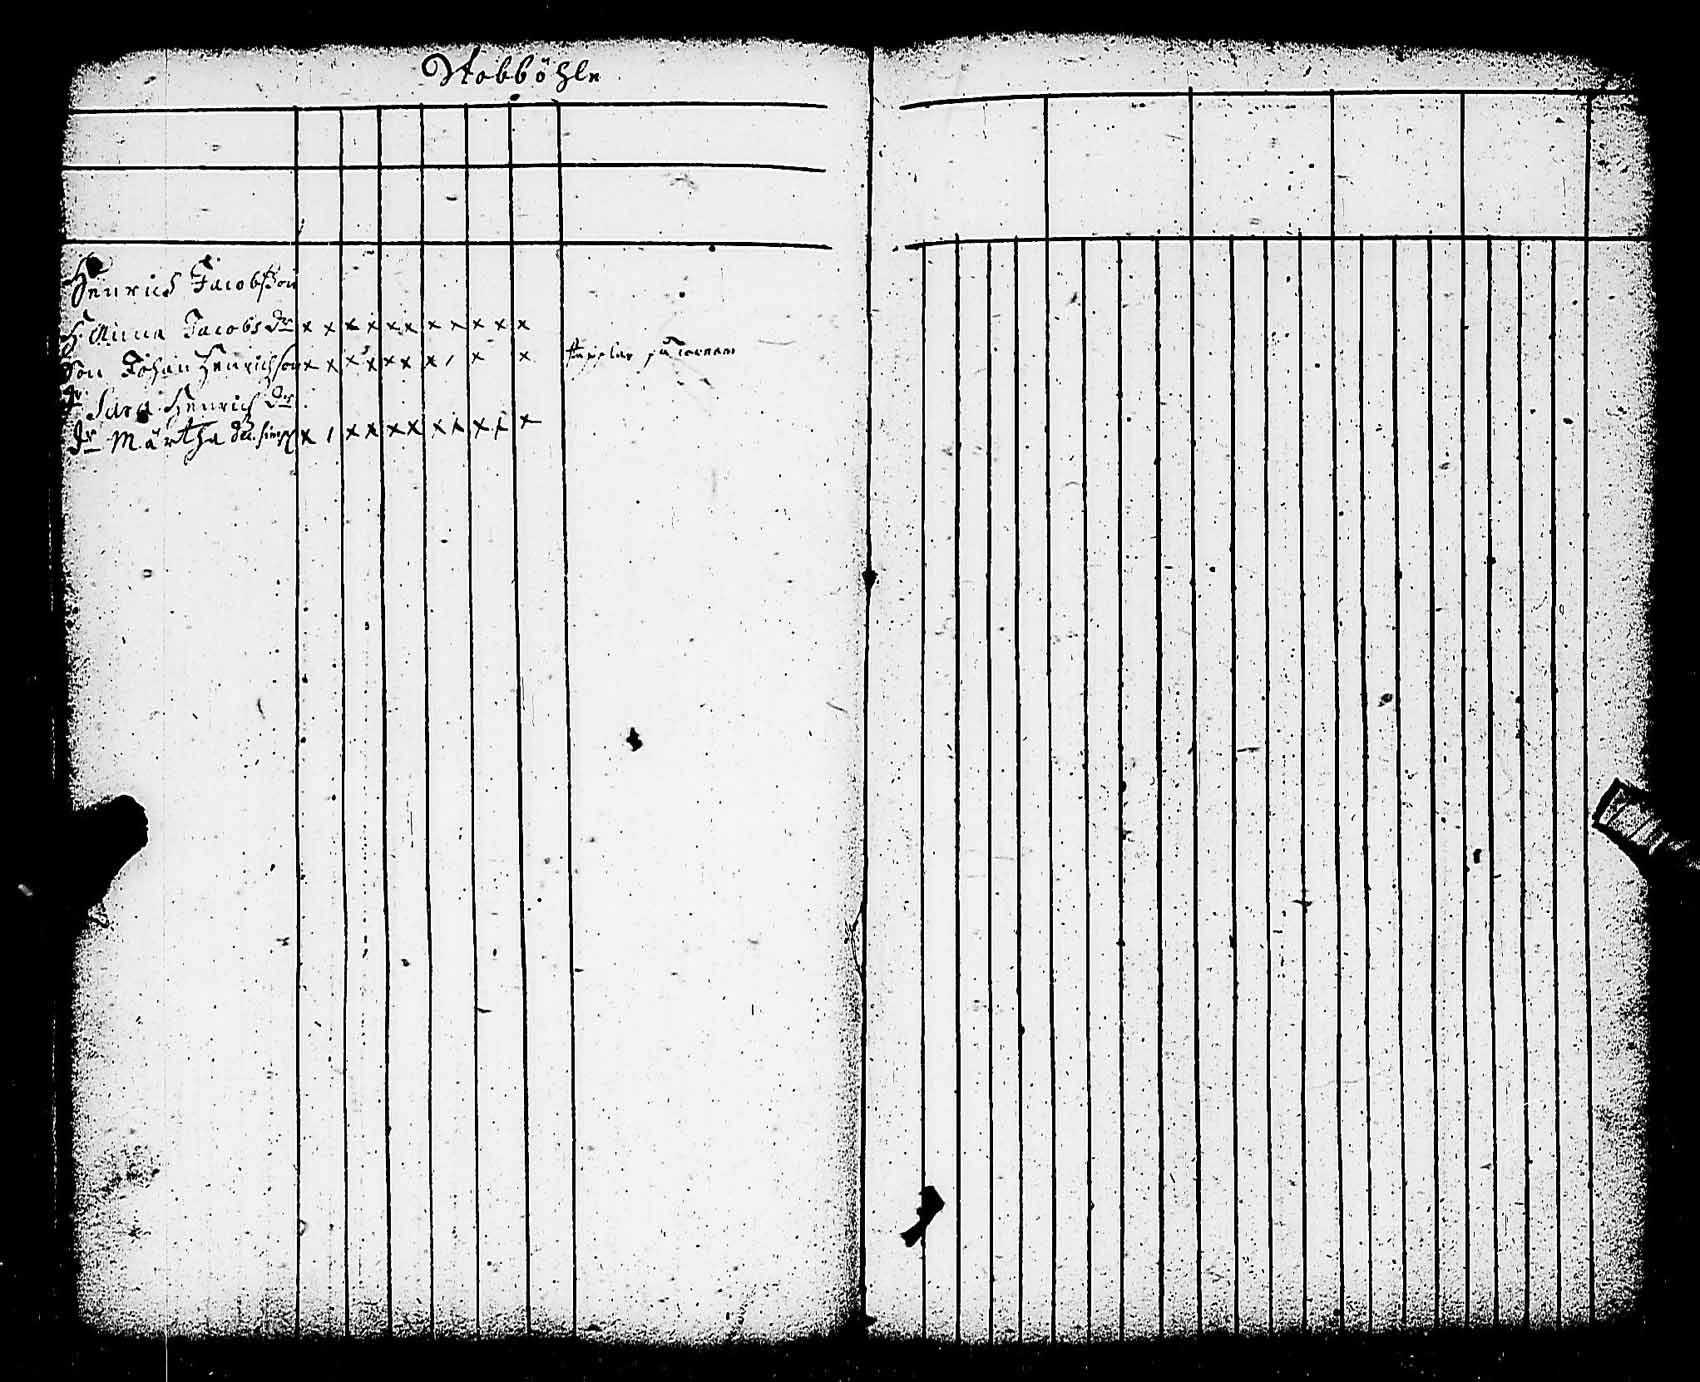 Stobböhle
Henrich Jacobsson
H. Anna Jacobs dr x x x x x x x x x x x
Son Johan Henrichson x x x x x x x / x x
dr Sara Henrichs dr
dr Märtha x / x x x x x x x x x